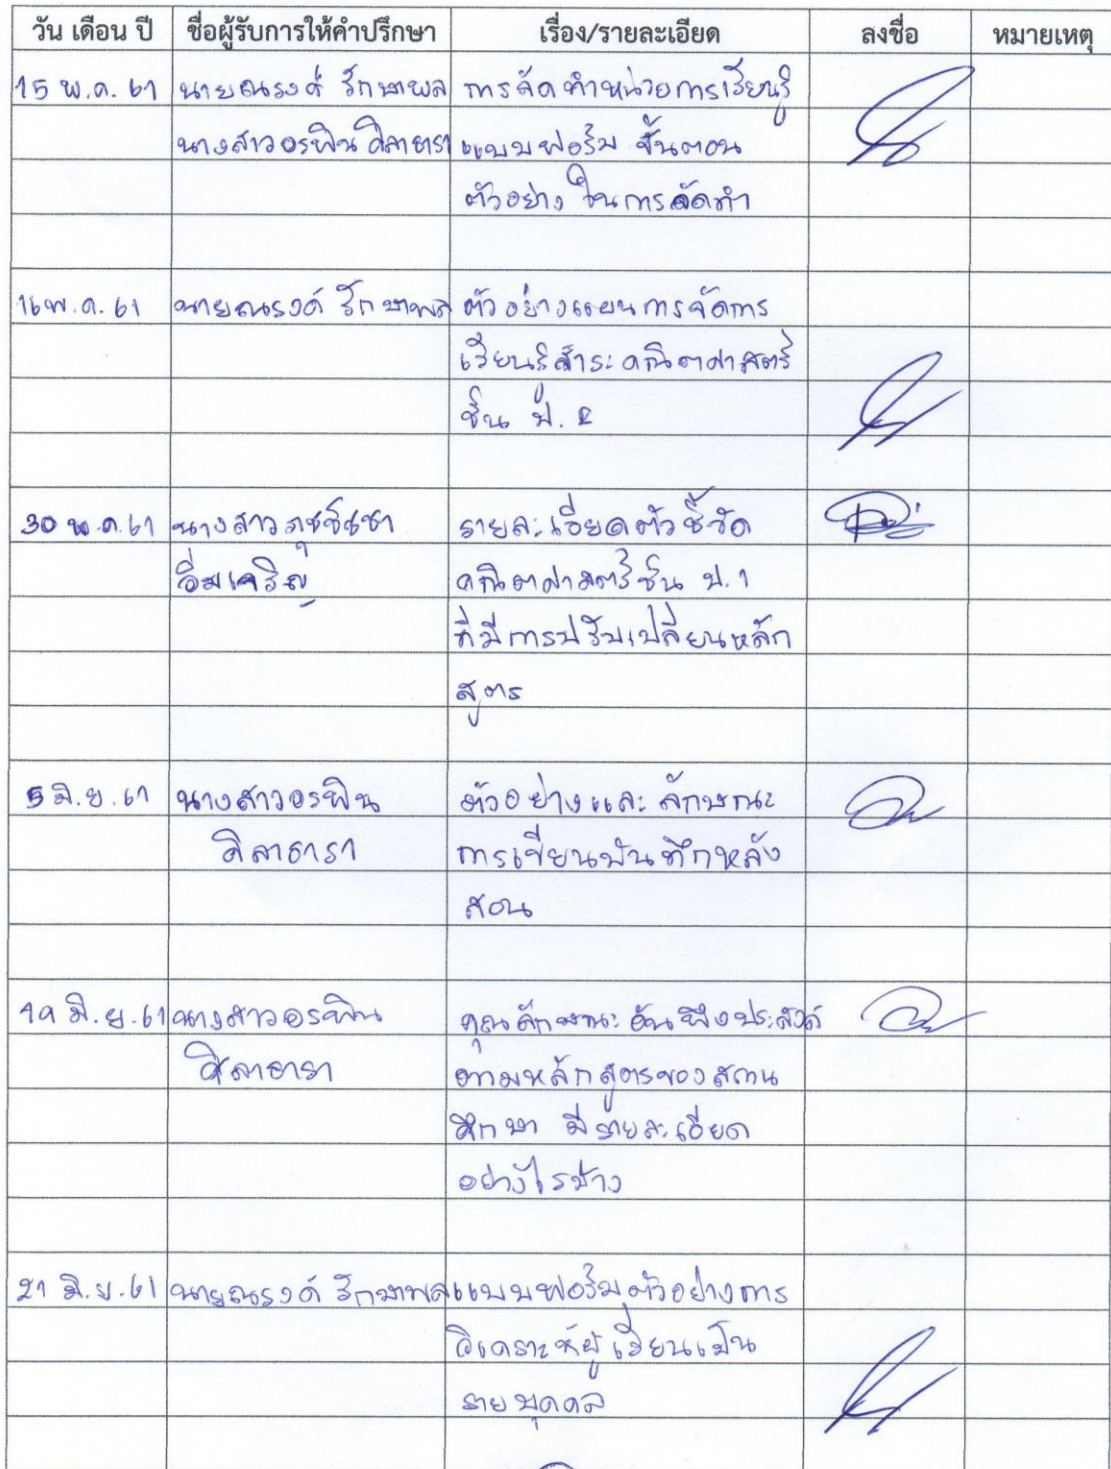 วัน เดือน ปี ชื่อผู้รับการให้คำปรึกษา เรื่อง/รายละเอียด ลงชื่อ หมายเหตุ
15 พ.ค. 61 นายณรงค์ รักษาพล การจัดทำหน่วยการเรียนรู้
นางสาวอรพิน ศิลาธารา แบบฟอร์ม ขั้นตอน
ตัวอย่าง ในการจัดทำ
16 พ.ค. 61 นายณรงค์ รักษาพล ตัวอย่างแผนการจัดการ
เรียนรู้สาระคณิตศาสตร์
ชั้น ป.
30 พ.ค. 61 นางสาว
อิ่มเจริญ
รายละเอียดตัวชี้วัด
คณิตศาสตร์ชั้น ป.1
ที่มีการปรับเปลี่ยนหลัก
สูตร
5 มิ.ย. 61 นางสาวอรพิน ตัวอย่างและลักษณะ
ศิลาธารา การเขียนบันทึกหลัง
สอน
19 มิ.ย. 61 นางสาวอรพิน คุณลักษณะอันพึงประสงค์
ศิลาธารา ตามหลักสูตรของสถาน
ศึกษา มีรายละเอียด
อย่างไรบ้าง
21 มิ.ย. 61 นายณรงค์ รักษาพล แบบฟอร์มตัวอย่างการ
วิเคราะห์ผู้เรียนเป็น
รายบุคคล